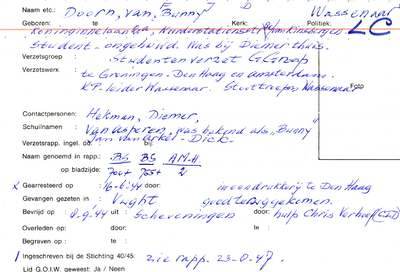 Naam etc.: Doorn, van, "Bunny" D Wassenaar
Geboren: te Kerk: Politiek:
LC
Student - ongehuwd. Was bij Diemer thuis.
Verzetsgroep: Studentenverzet G Groep
Verzetswerk te Groningen - Den Haag en Amsterdam.
K.P. leider Wassenaar. Stoottroepen Wassenaar
Foto
Contactpersonen: Hekman, Diemer,
Schuilnamen van Asperen, was bekend als "Bunny"
Jan van Arkel - Dick.
Verzetsrapp. ingel. dd. bij:
Naam genoemd in rapp.: BS BS AM-H
op bladzijde:
x Gearresteerd op 16-6-44 door: in een drukkerij te Den Haag
Gevangen gezeten in: Vught goed teruggekomen.
Bevrijd op: 8.9.44 uit Scheveningen door: hulp Chris Verhoef (C.I.D)
Overleden op: te door:
Begraven op: te
Ingeschreven bij de Stichting 40/45: zie rapp. 23-8.47.
Lid G.O.I.W. geweest: Ja / Neen